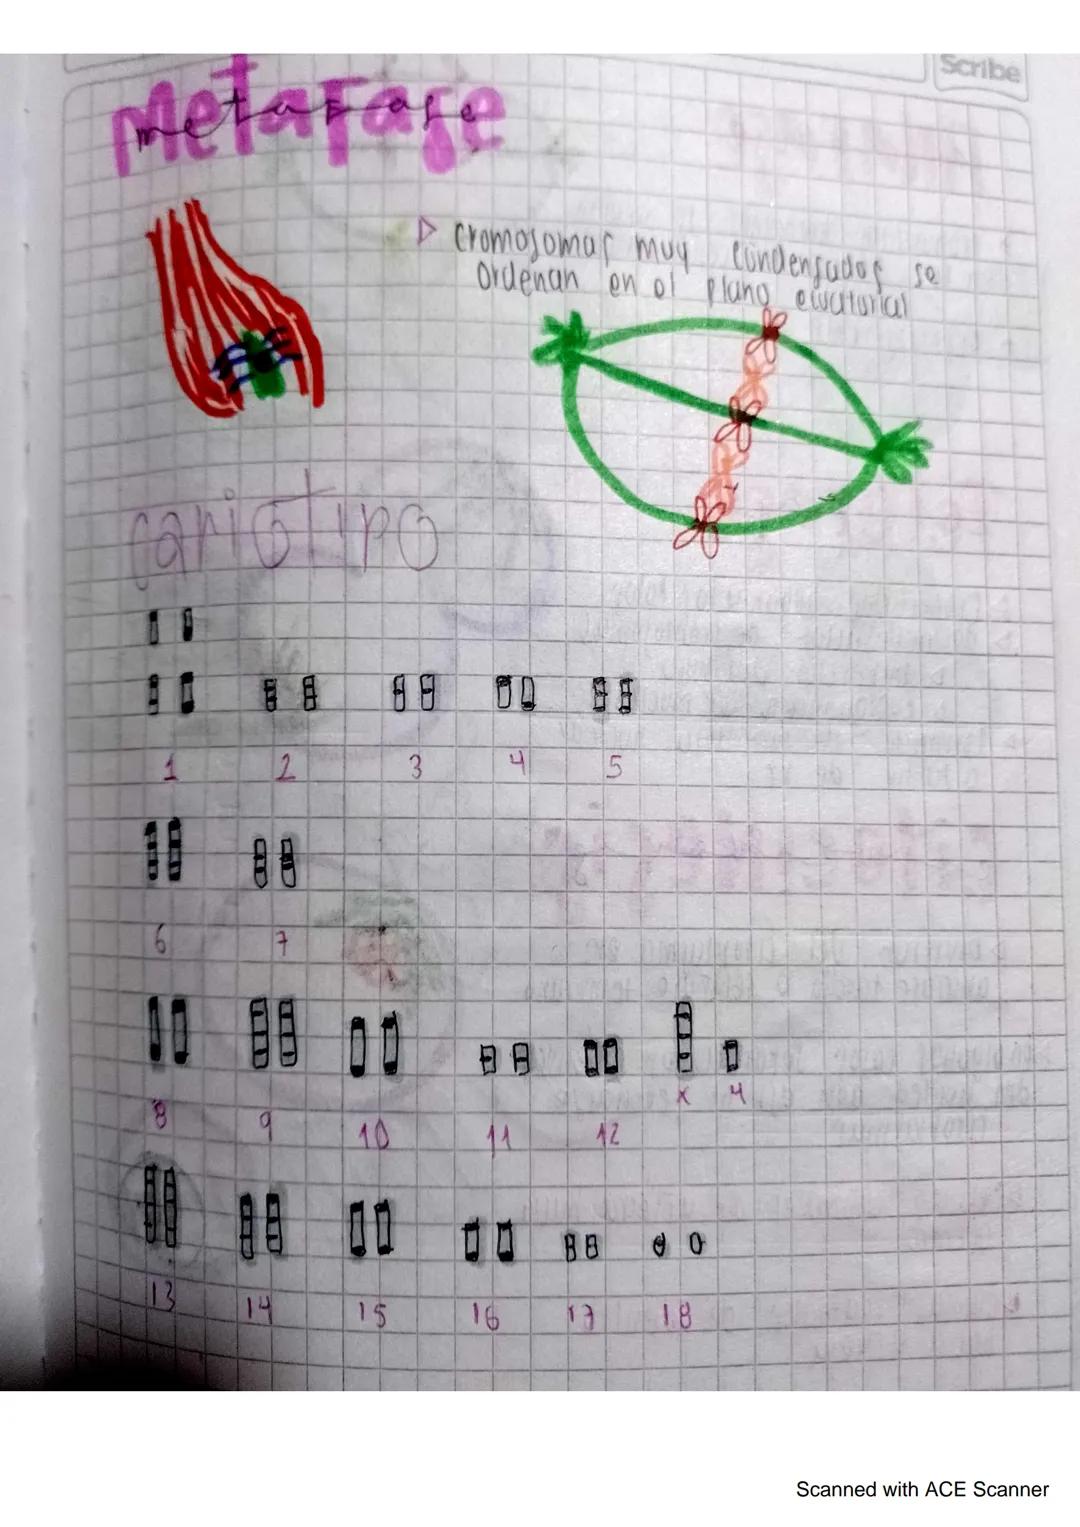 Scribe
Metafase
metafase
▷ Cromosomas muy condensados se
Ordenan en el plano ecuatorial
cariotipo
1 2 3 4 5
6 7
x 4
8 9 10 11 12
13 14 15 16 17 18
Scanned with ACE Scanner